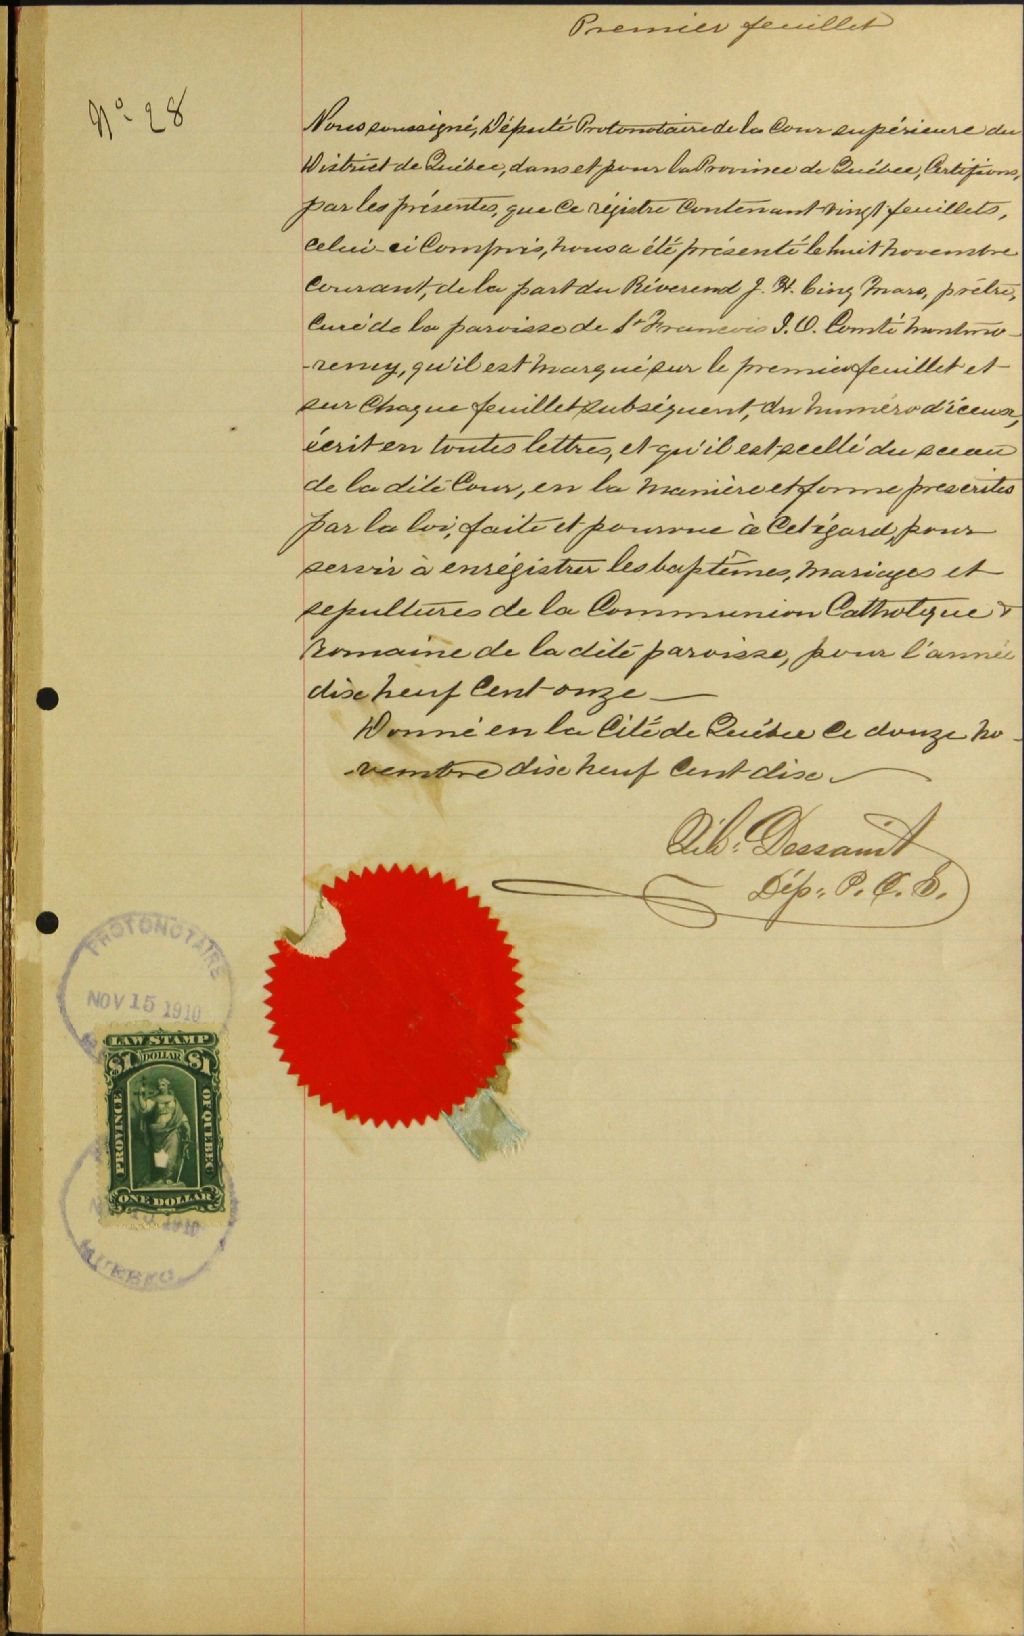 Premier feuillet
No 28
Nous soussigné, Député Protonotaire de la Cour supérieure du
District de Québec, dans et pour la Province de Québec, Certifions,
par les présentes, que ce régistre contenant vingt feuillets,
celui-ci compris, nous a été présenté le huit novembre
courant, de la part du Révérend J. H. Cinq Mars, prêtre,
curé de la paroisse de St François I. O. Comté Montmo-
-rency, qu'il est marqué sur le premier feuillet et
sur chaque feuillet subséquent, du numéro d'iceux,
écrit en toutes lettres, et qu'il est scellé du sceau
de la dite Cour, en la manière et forme prescrites
par la loi, faite et pourvue à cet égard, pour
servir à enrégistrer les baptêmes, mariages et
sépultures de la Communion Catholique &
romaine de la dite paroisse, pour l'année
dix neuf cent onze —
Donné en la Cité de Québec ce douze no-
-vembre dix neuf cent dix —
Dessaint
Dép. P. C. S.
PROTONOTAIRE
NOV 15 1910
LAW STAMP
$1 DOLLAR $1
PROVINCE
OF QUEBEC
ONE DOLLAR
1910
QUEBEC